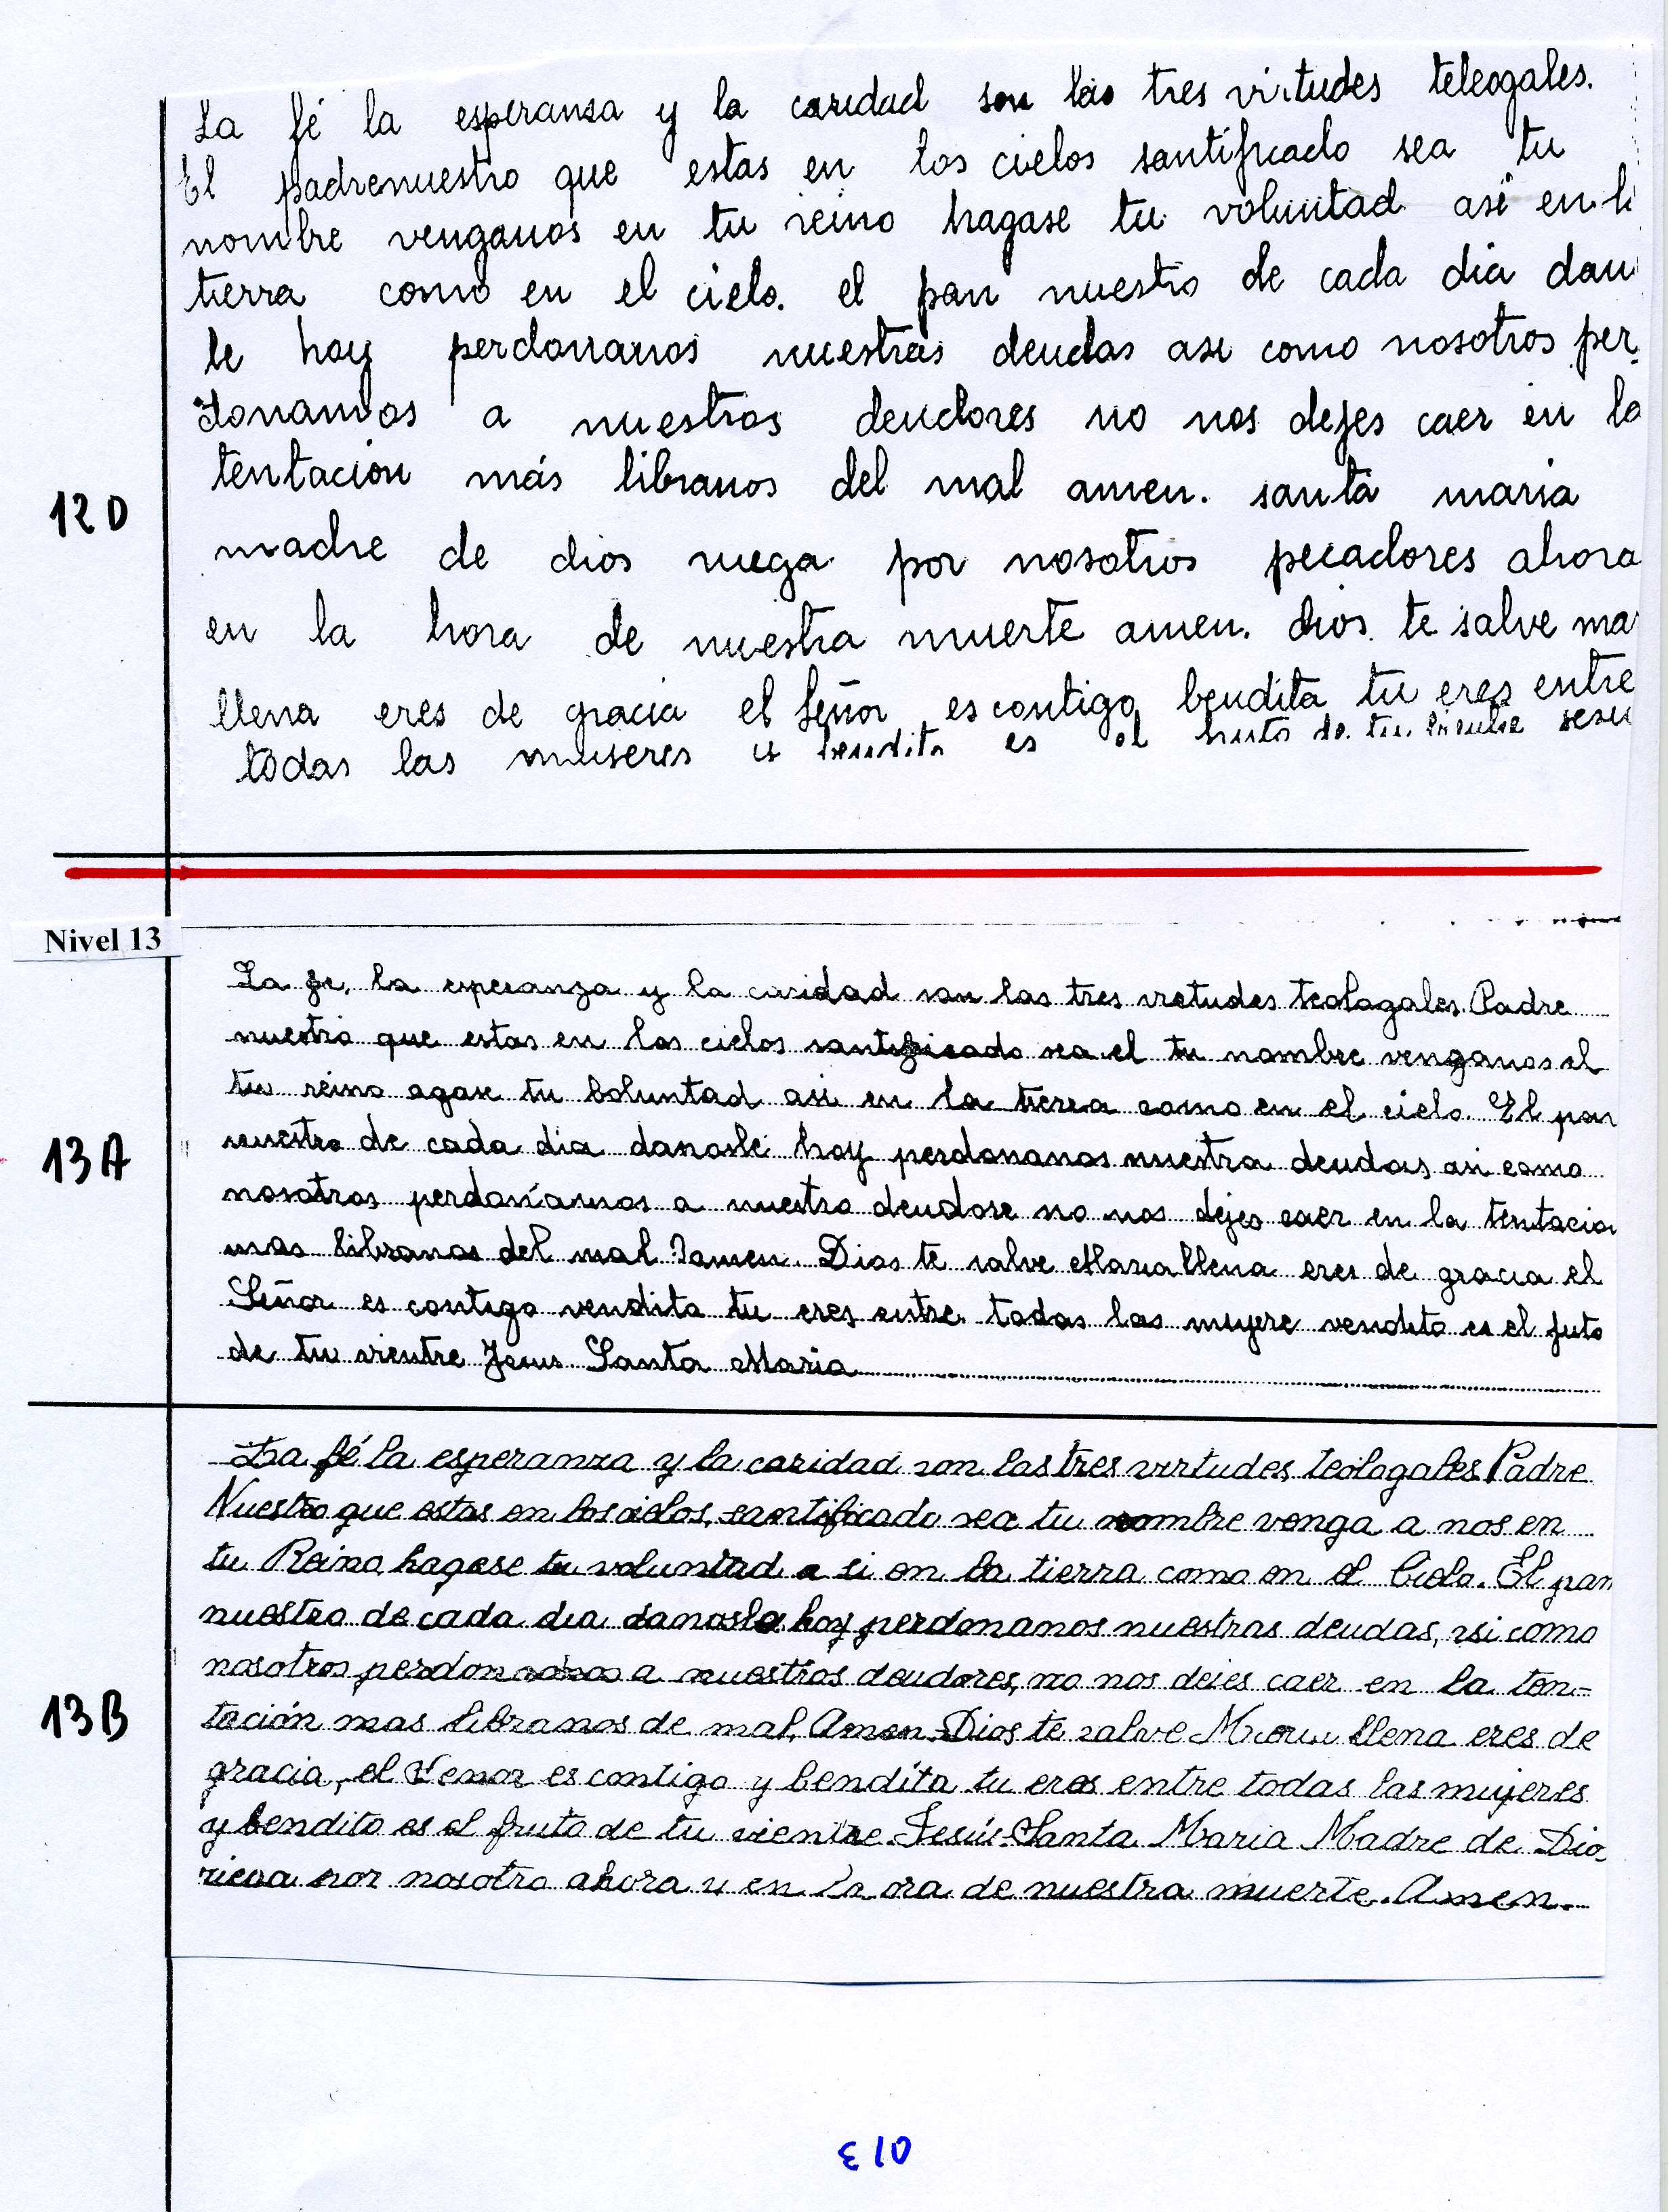 La fé la esperansa y la caridad son las tres virtudes teleogales.
El padrenuestro que estas en los cielos santificado sea tu
nombre venganos en tu reino hagase tu voluntad asi en l
tierra como en el cielo. el pan nuestro de cada dia dan
le hoy perdonanos nuestras deudas asi como nosotros per
donamos a nuestros deudores no nos dejes caer en la
tentación más libranos del mal amen. santa maria
12D
madre de dios ruega por nosotros pecadores ahora
en la hora de nuestra muerte amen. dios te salve ma
llena eres de gracia el Señor es contigo bendita tu eres entre
todas las museres y bendito es el fruto de tu
Nivel 13
La fe, la esperanza y la caridad son las tres virtudes teolagales. Padre
nuestro que estas en los cielos santificado sea el tu nombre venganos el
tu reino agase tu boluntad asi en la tierra como en el cielo. El pan
13A
nuestro de cada dia danosle hoy perdonanos nuestra deudas asi como
nosotros perdoníamos a nuestro deudose no nos dejes caer en la tentacion
mas libranos del mal amen. Dios te salve Maria llena eres de gracia el
Señor es contigo vendita tu eres entre todas las muyere vendito es el futo
de tu vientre Jesus Santa Maria
La fé la esperanza y la caridad son las tres virtudes teologales Padre
Nuestro que estas en los cielos, santificado sea tu nombre venga a nos en
tu Reino hagase tu voluntad a si en la tierra como en el Cielo. El pan
nuestro de cada dia danosle hoy perdonanos nuestras deudas, asi como
nosotros a nuestros deudores, no nos dejes caer en la ten-
13B
tación mas libranos de mal, Amen. Dios te salve Maria llena eres de
gracia, el Senor es contigo y bendita tu eres entre todas las mujeres
y bendito es el fruto de tu vientre Jesús. Santa Maria Madre de Dio
por nosotro ahora y en la ora de nuestra muerte. Amen.
013